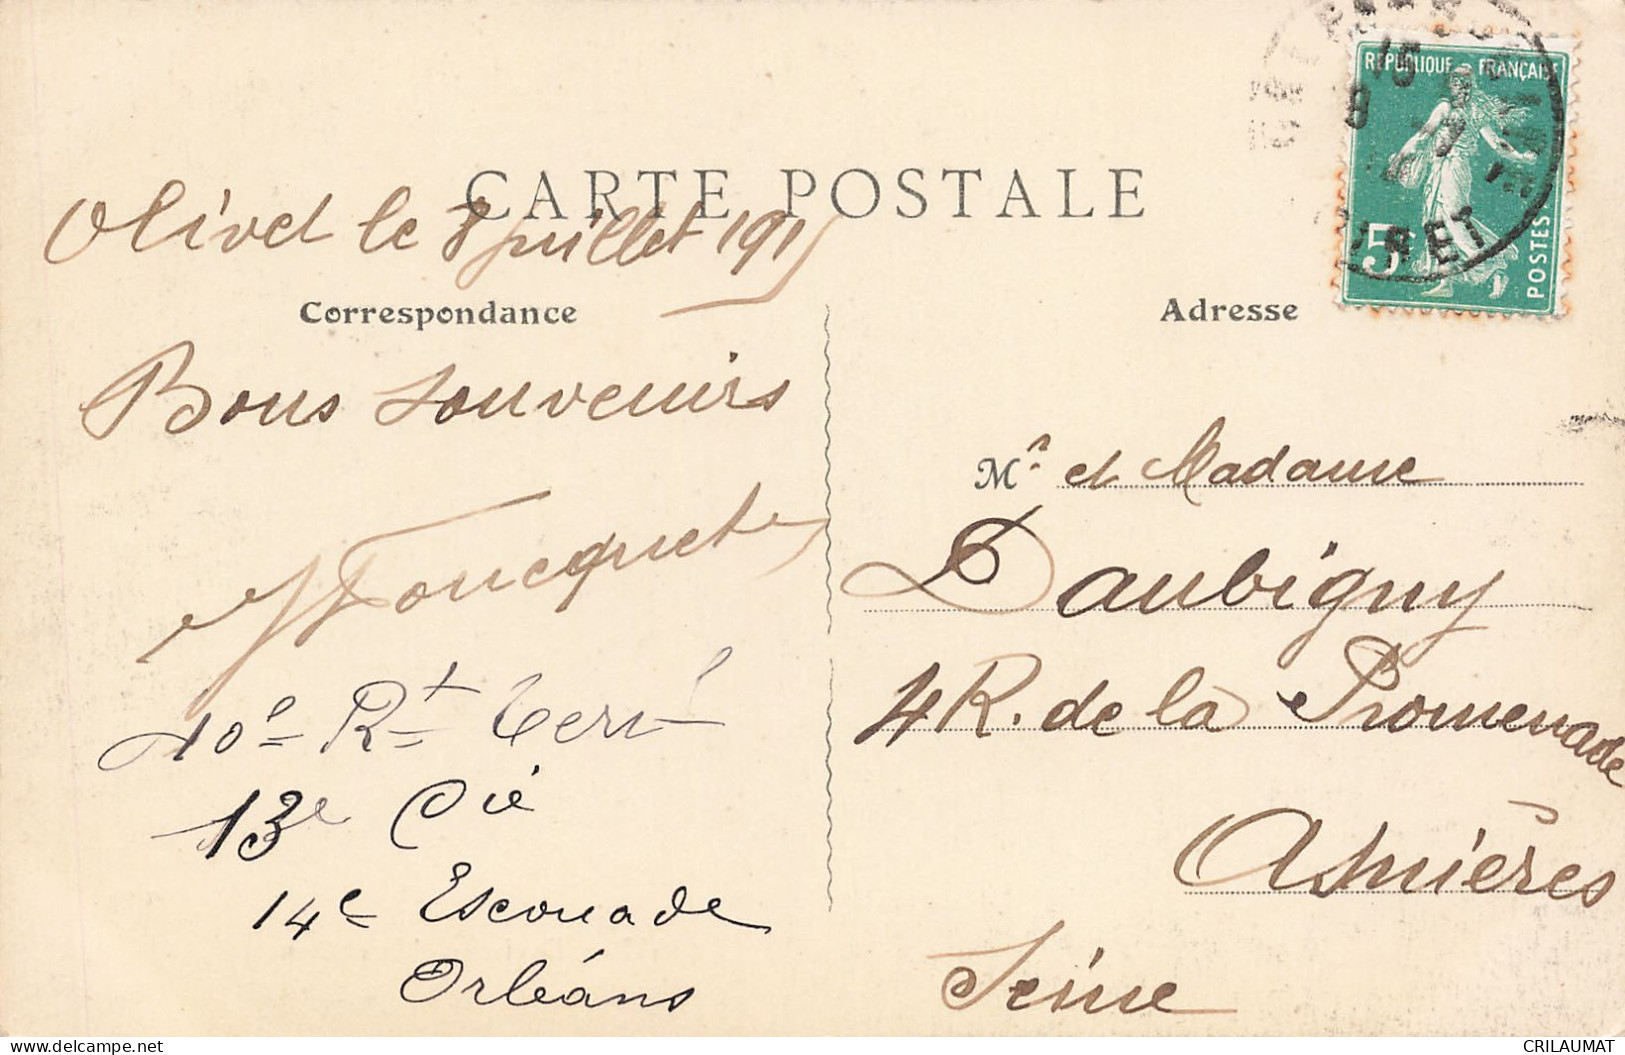 CARTE POSTALE
Olivet le 8 juillet 191
Correspondance
Bons souvenirs
Foucquet
40e Rt terr
13e Cie
14e Escouade
Orléans
Adresse
RÉPUBLIQUE FRANÇAISE
5
POSTES
Mr. et Madame
Daubigny
4 R. de la Promenade
Asnières
Seine
WWW.DELCAMPE.NET
CRILAUMAT